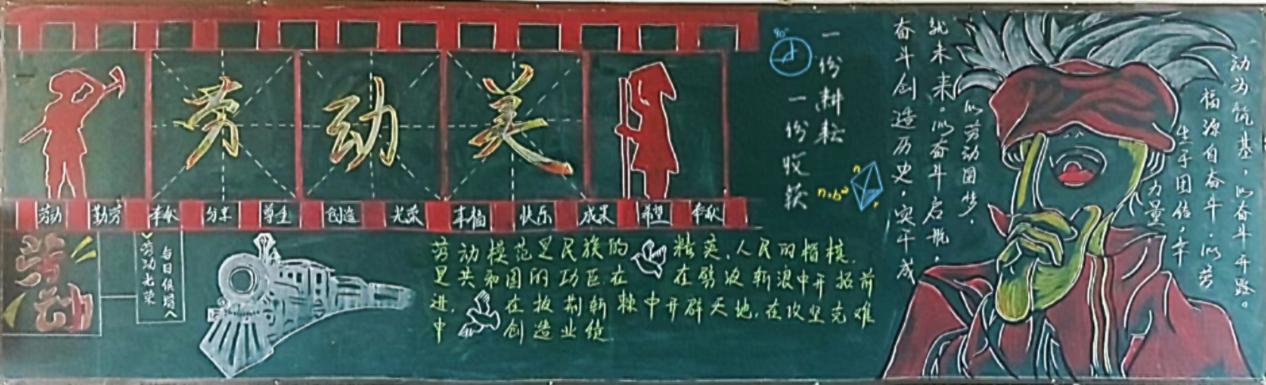 劳动美
劳动 勤劳 奉献 分享 尊重 创造 光荣 幸福 快乐 成果 希望 奉献
劳动
劳动光荣
劳动模范是民族的精英,人民的楷模,
是共和国的功臣在 在劈波斩浪中开拓前
进,在披荆斩棘中开辟天地,在攻坚克难
中 创造业绩
一份耕耘
一份收获
90°
动为筑基,以奋斗开路。
福源自奋斗,以劳
生于团结,幸
力量
以劳动圆梦,
就未来。以奋斗启航,
奋斗创造历史,实干成